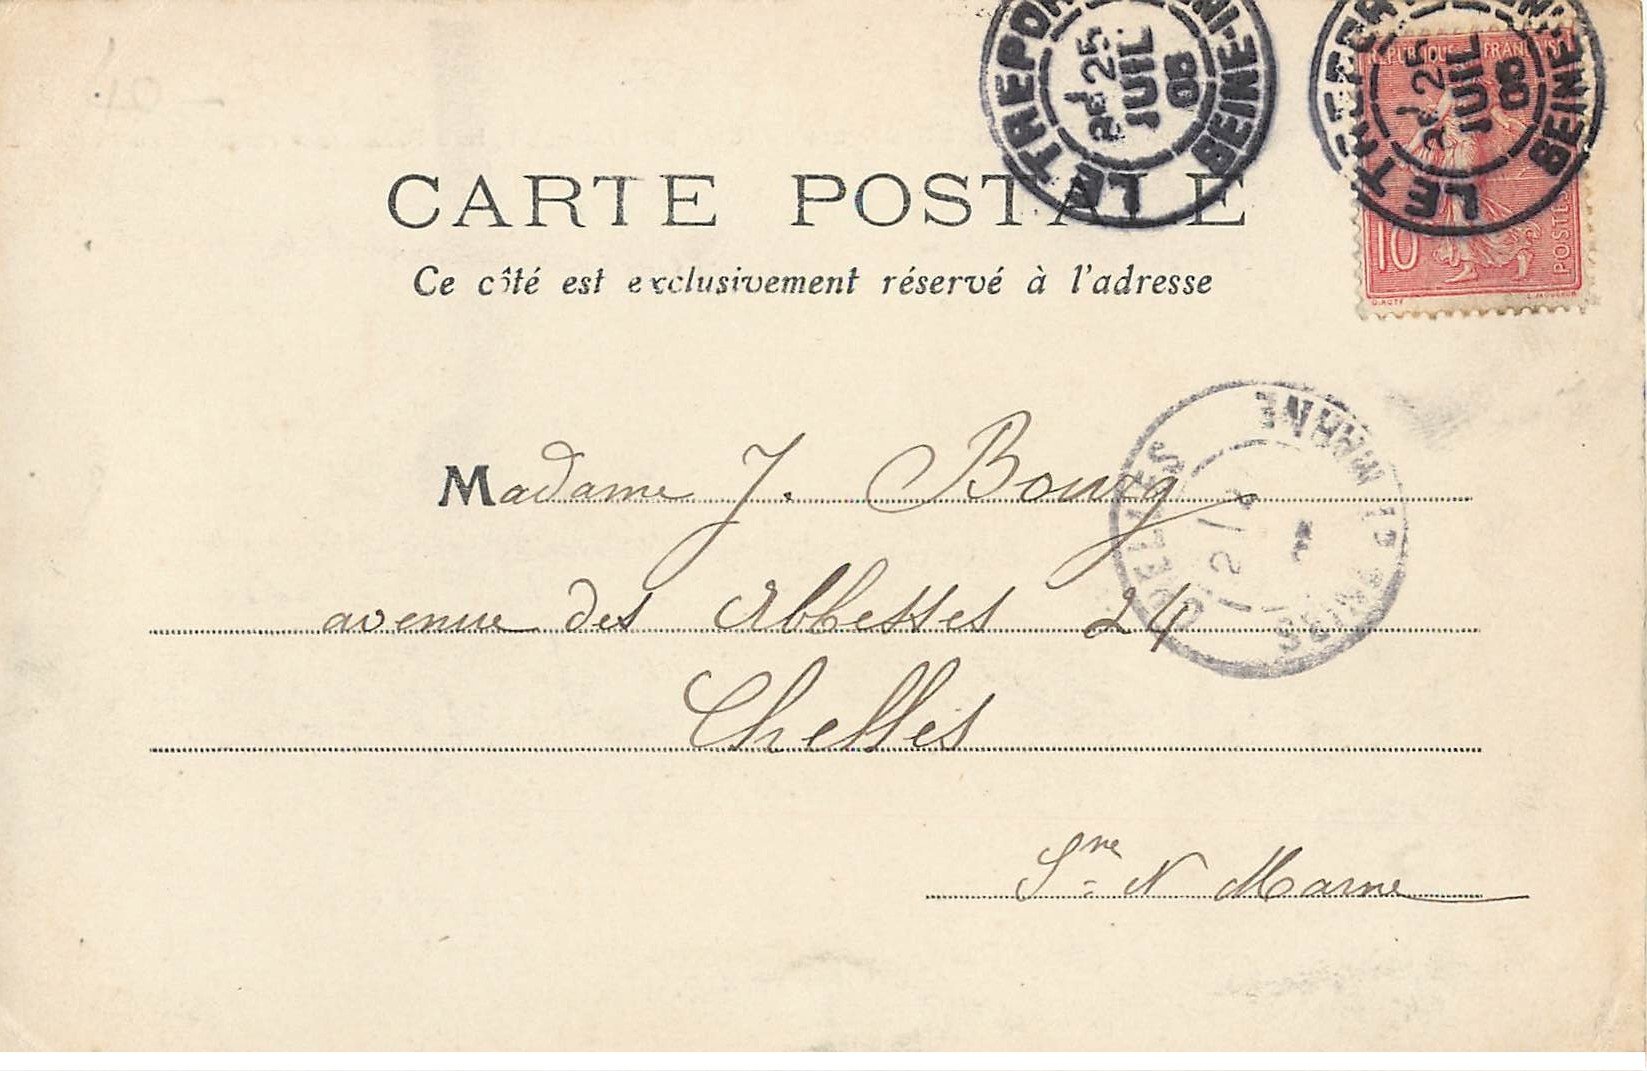 LE TREPORT SEINE
2e 25
JUIL
05
LE TREPORT SEINE
2e 25
JUIL
05
REPUBLIQUE FRANÇAISE
10
POSTES
CARTE POSTALE
Ce côté est exclusivement réservé à l'adresse
CHELLES
MARNE
Madame J. Bourg
avenue des Abbesses 24
Chelles
S.ne & Marne